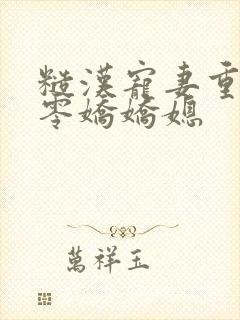 糙漢寵妻重
零嬌嬌媳
萬祥玉